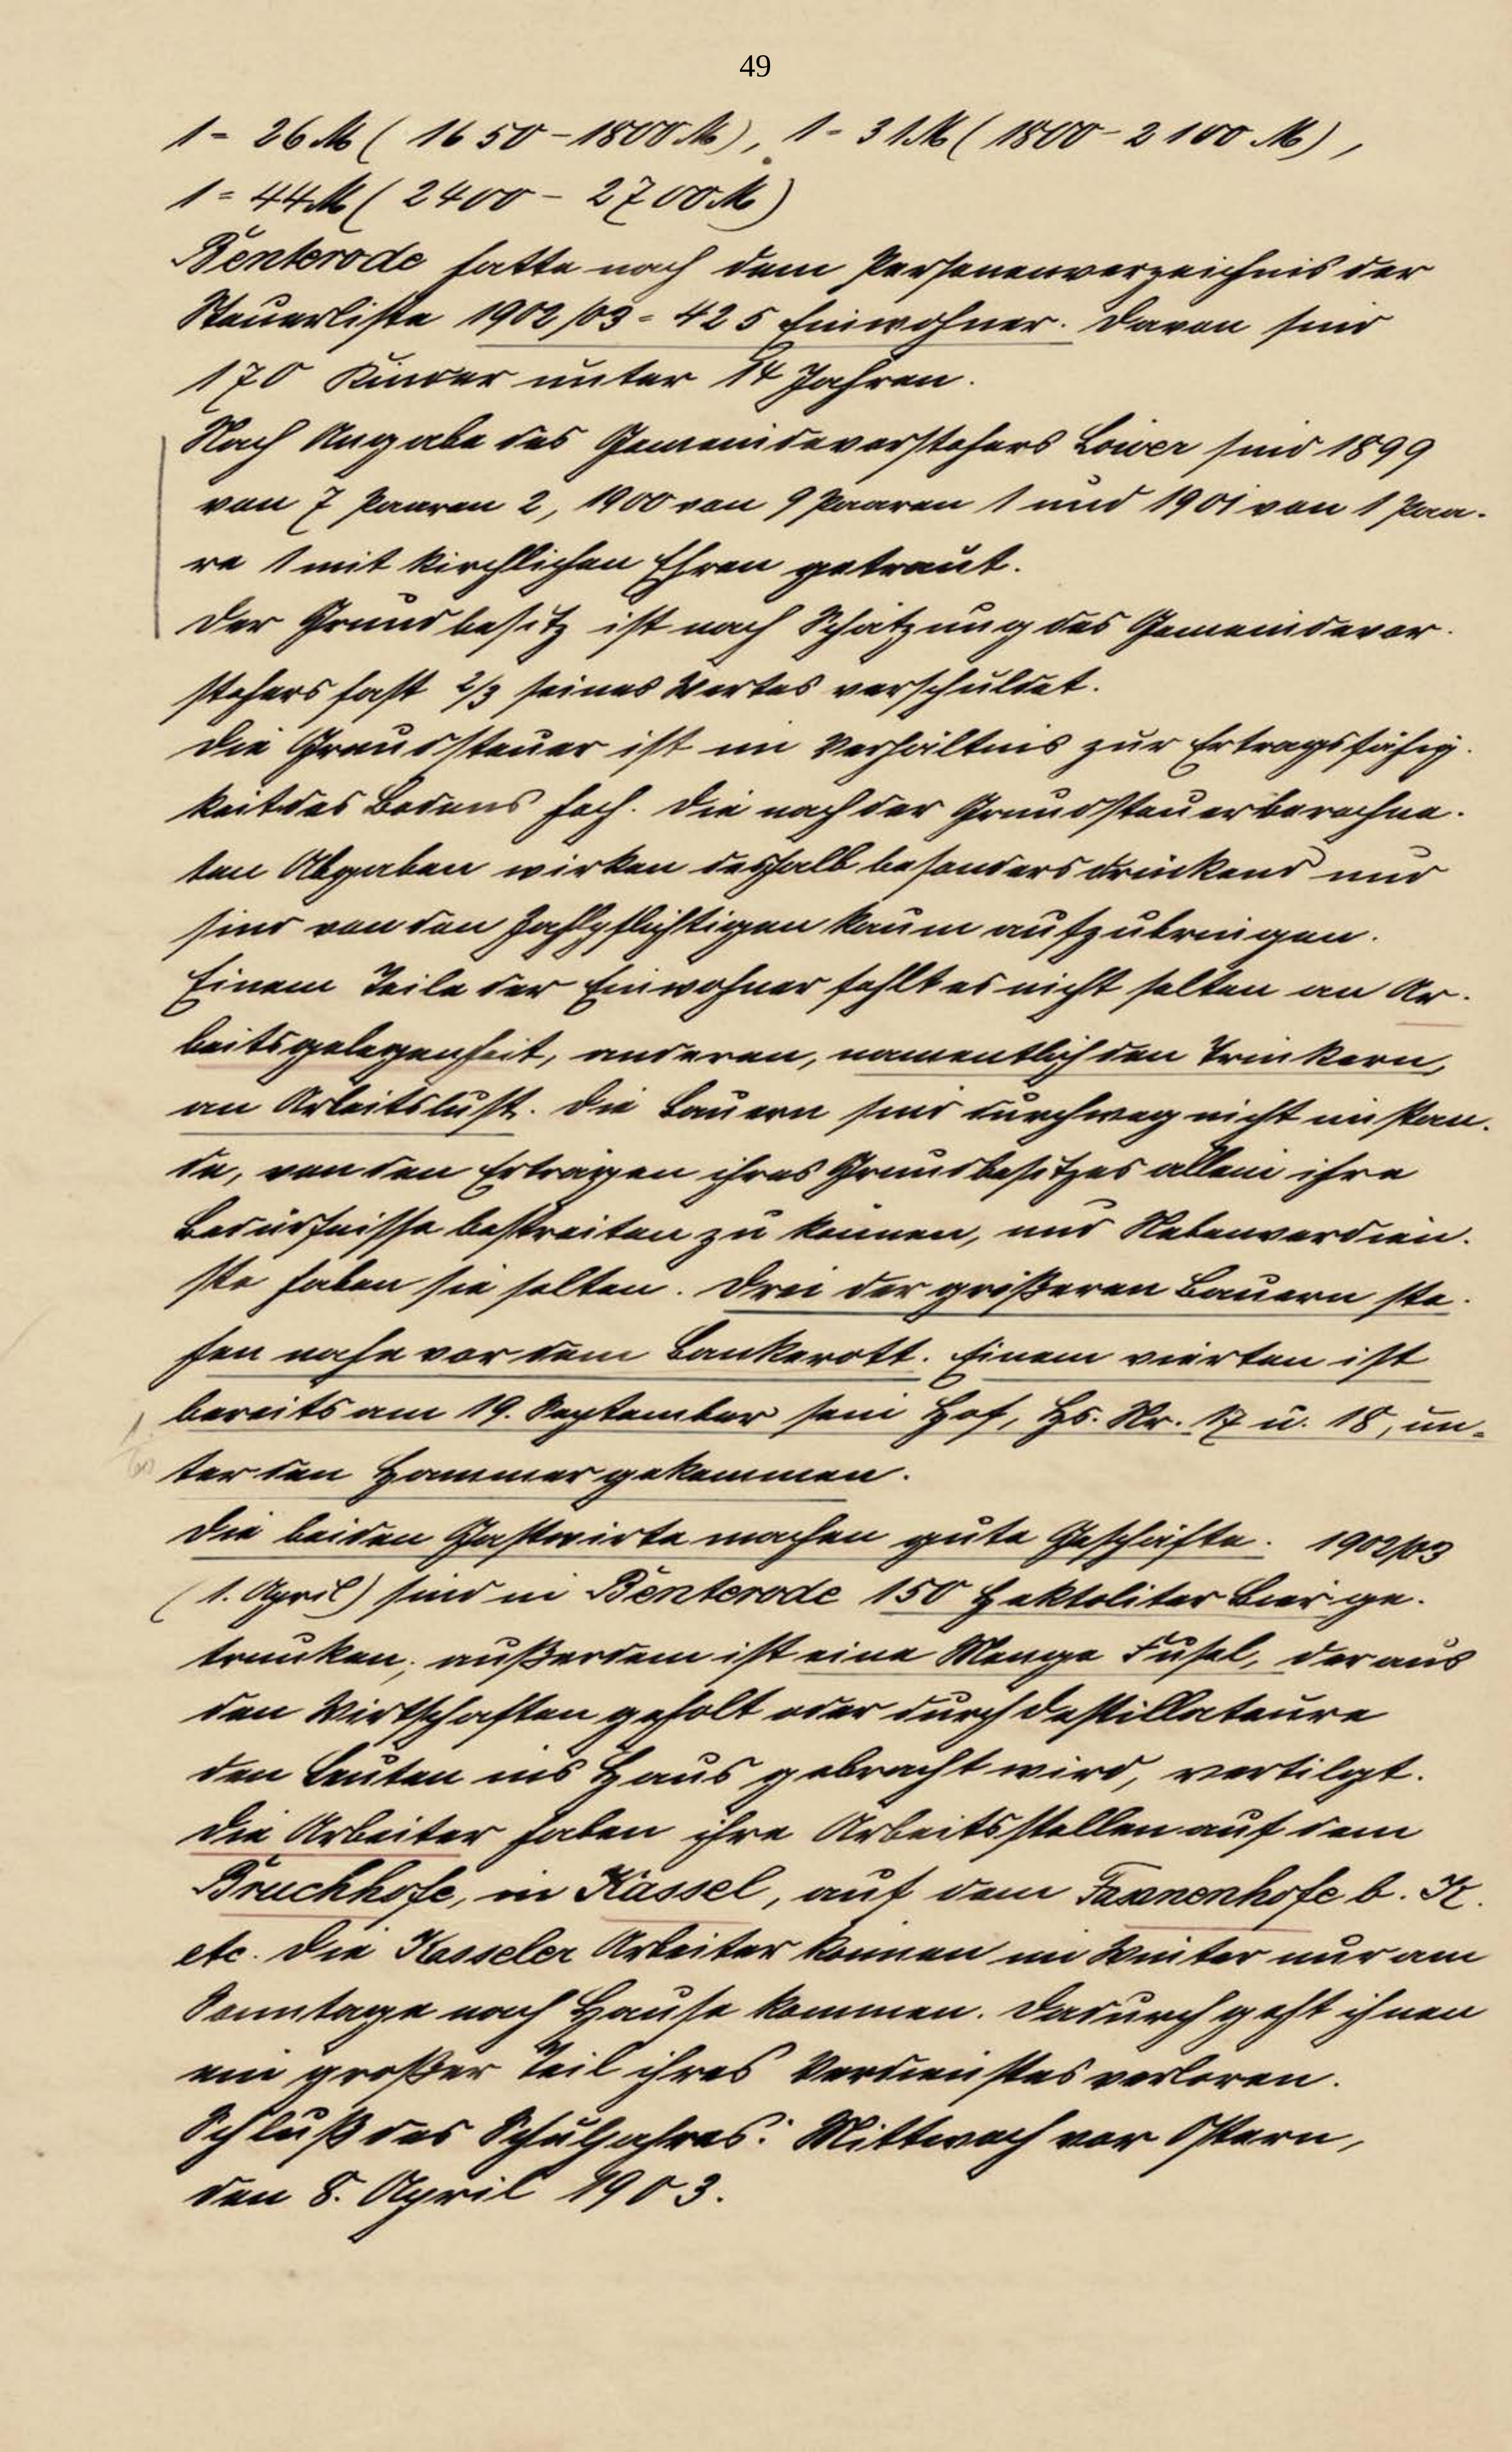 49
1 = 26 M ( 1650 - 1800 M ), 1 = 31 M ( 1800 - 2100 M ),
1 = 44 M ( 2400 - 2700 M )
Benterode hatte nach dem Personenverzeichnis der
Steuerliste 1902/03 = 425 Einwohner. Davon sind
170 Kinder unter 14 Jahren.
Nach Angabe des Gemeindevorstehers Löwer sind 1899
von 7 Paaren 2, 1900 von 9 Paaren 1 und 1901 von 1 Paa-
re 1 mit kirchlichen Ehren getraut.
Der Grundbesitz ist nach Schätzung des Gemeindevor-
stehers fast 2/3 seines Wertes verschuldet.
Die Grundsteuer ist im Verhältnis zur Ertragsfähig-
keit des Bodens hoch. Die nach der Grundsteuer berechne-
ten Abgaben wirken deshalb besonders drückend und
sind von den Zahlpflichtigen kaum aufzubringen.
Einem Teile der Einwohner fehlt es nicht selten an Ar-
beitsgelegenheit, anderen, namentlich den Trinkern,
an Arbeitslust. Die Bauern sind durchweg nicht imstan-
de, von den Erträgen ihres Grundbesitzes allein ihre
Bedürfnisse bestreiten zu können, und Nebenverdien-
ste haben sie selten. Drei der größeren Bauern ste-
hen nahe vor dem Bankerott. Einem vierten ist
bereits am 19. September sein Hof, Hs. Nr. 17 u. 18, un-
ter den Hammer gekommen.
Die beiden Gastwirte machen gute Geschäfte. 1902/03
( 1. April ) sind in Benterode 150 Hektoliter Bier ge-
trunken; außerdem ist eine Menge Fusel, der aus
den Wirtschaften geholt oder durch Destillateure
den Leuten ins Haus gebracht wird, vertilgt.
Die Arbeiter haben ihre Arbeitsstellen auf dem
Bruchhofe, in Kassel, auf dem Fasanenhofe b. K.
etc. Die Kasseler Arbeiter können im Winter nur am
Sonntage nach Hause kommen. Dadurch geht ihnen
ein großer Teil ihres Verdienstes verloren.
Schluß des Schuljahres: Mittwoch vor Ostern,
den 8. April 1903.